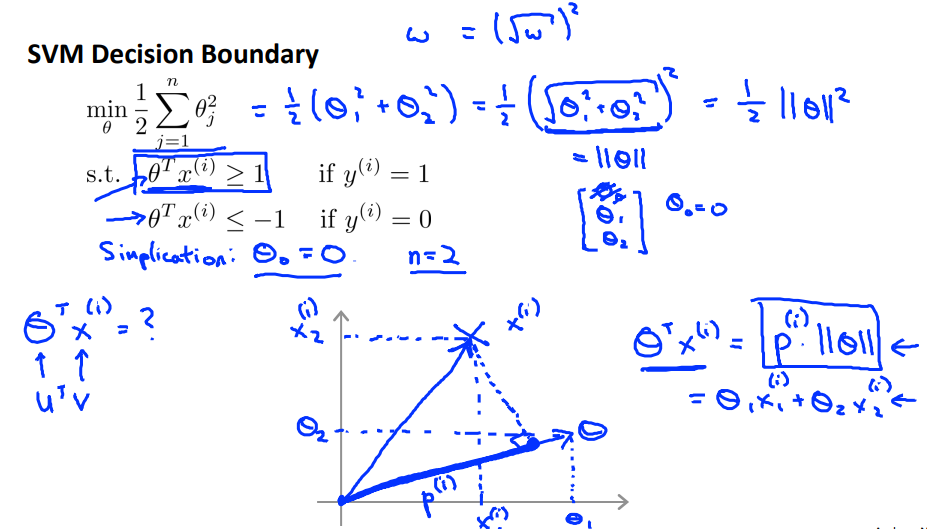 ω = (√ω)²
SVM Decision Boundary
min_θ 1/2 ∑_{j=1}^{n} θ_j² = 1/2 (θ₁² + θ₂²) = 1/2 (√(θ₁² + θ₂²))² = 1/2 ||θ||²
= ||θ||
s.t. θᵀx⁽ⁱ⁾ ≥ 1 if y⁽ⁱ⁾ = 1
θᵀx⁽ⁱ⁾ ≤ −1 if y⁽ⁱ⁾ = 0
[θ₁ θ₂] θ₀ = 0
Simplication: θ₀ = 0. n=2
θᵀx⁽ⁱ⁾ = ?
↑ ↑
uᵀv
x₂⁽ⁱ⁾
x⁽ⁱ⁾
θ₂
θ
p⁽ⁱ⁾
x₁⁽ⁱ⁾
θ₁
θᵀx⁽ⁱ⁾ = p⁽ⁱ⁾ · ||θ|| ←
= θ₁x₁⁽ⁱ⁾ + θ₂x₂⁽ⁱ⁾ ←